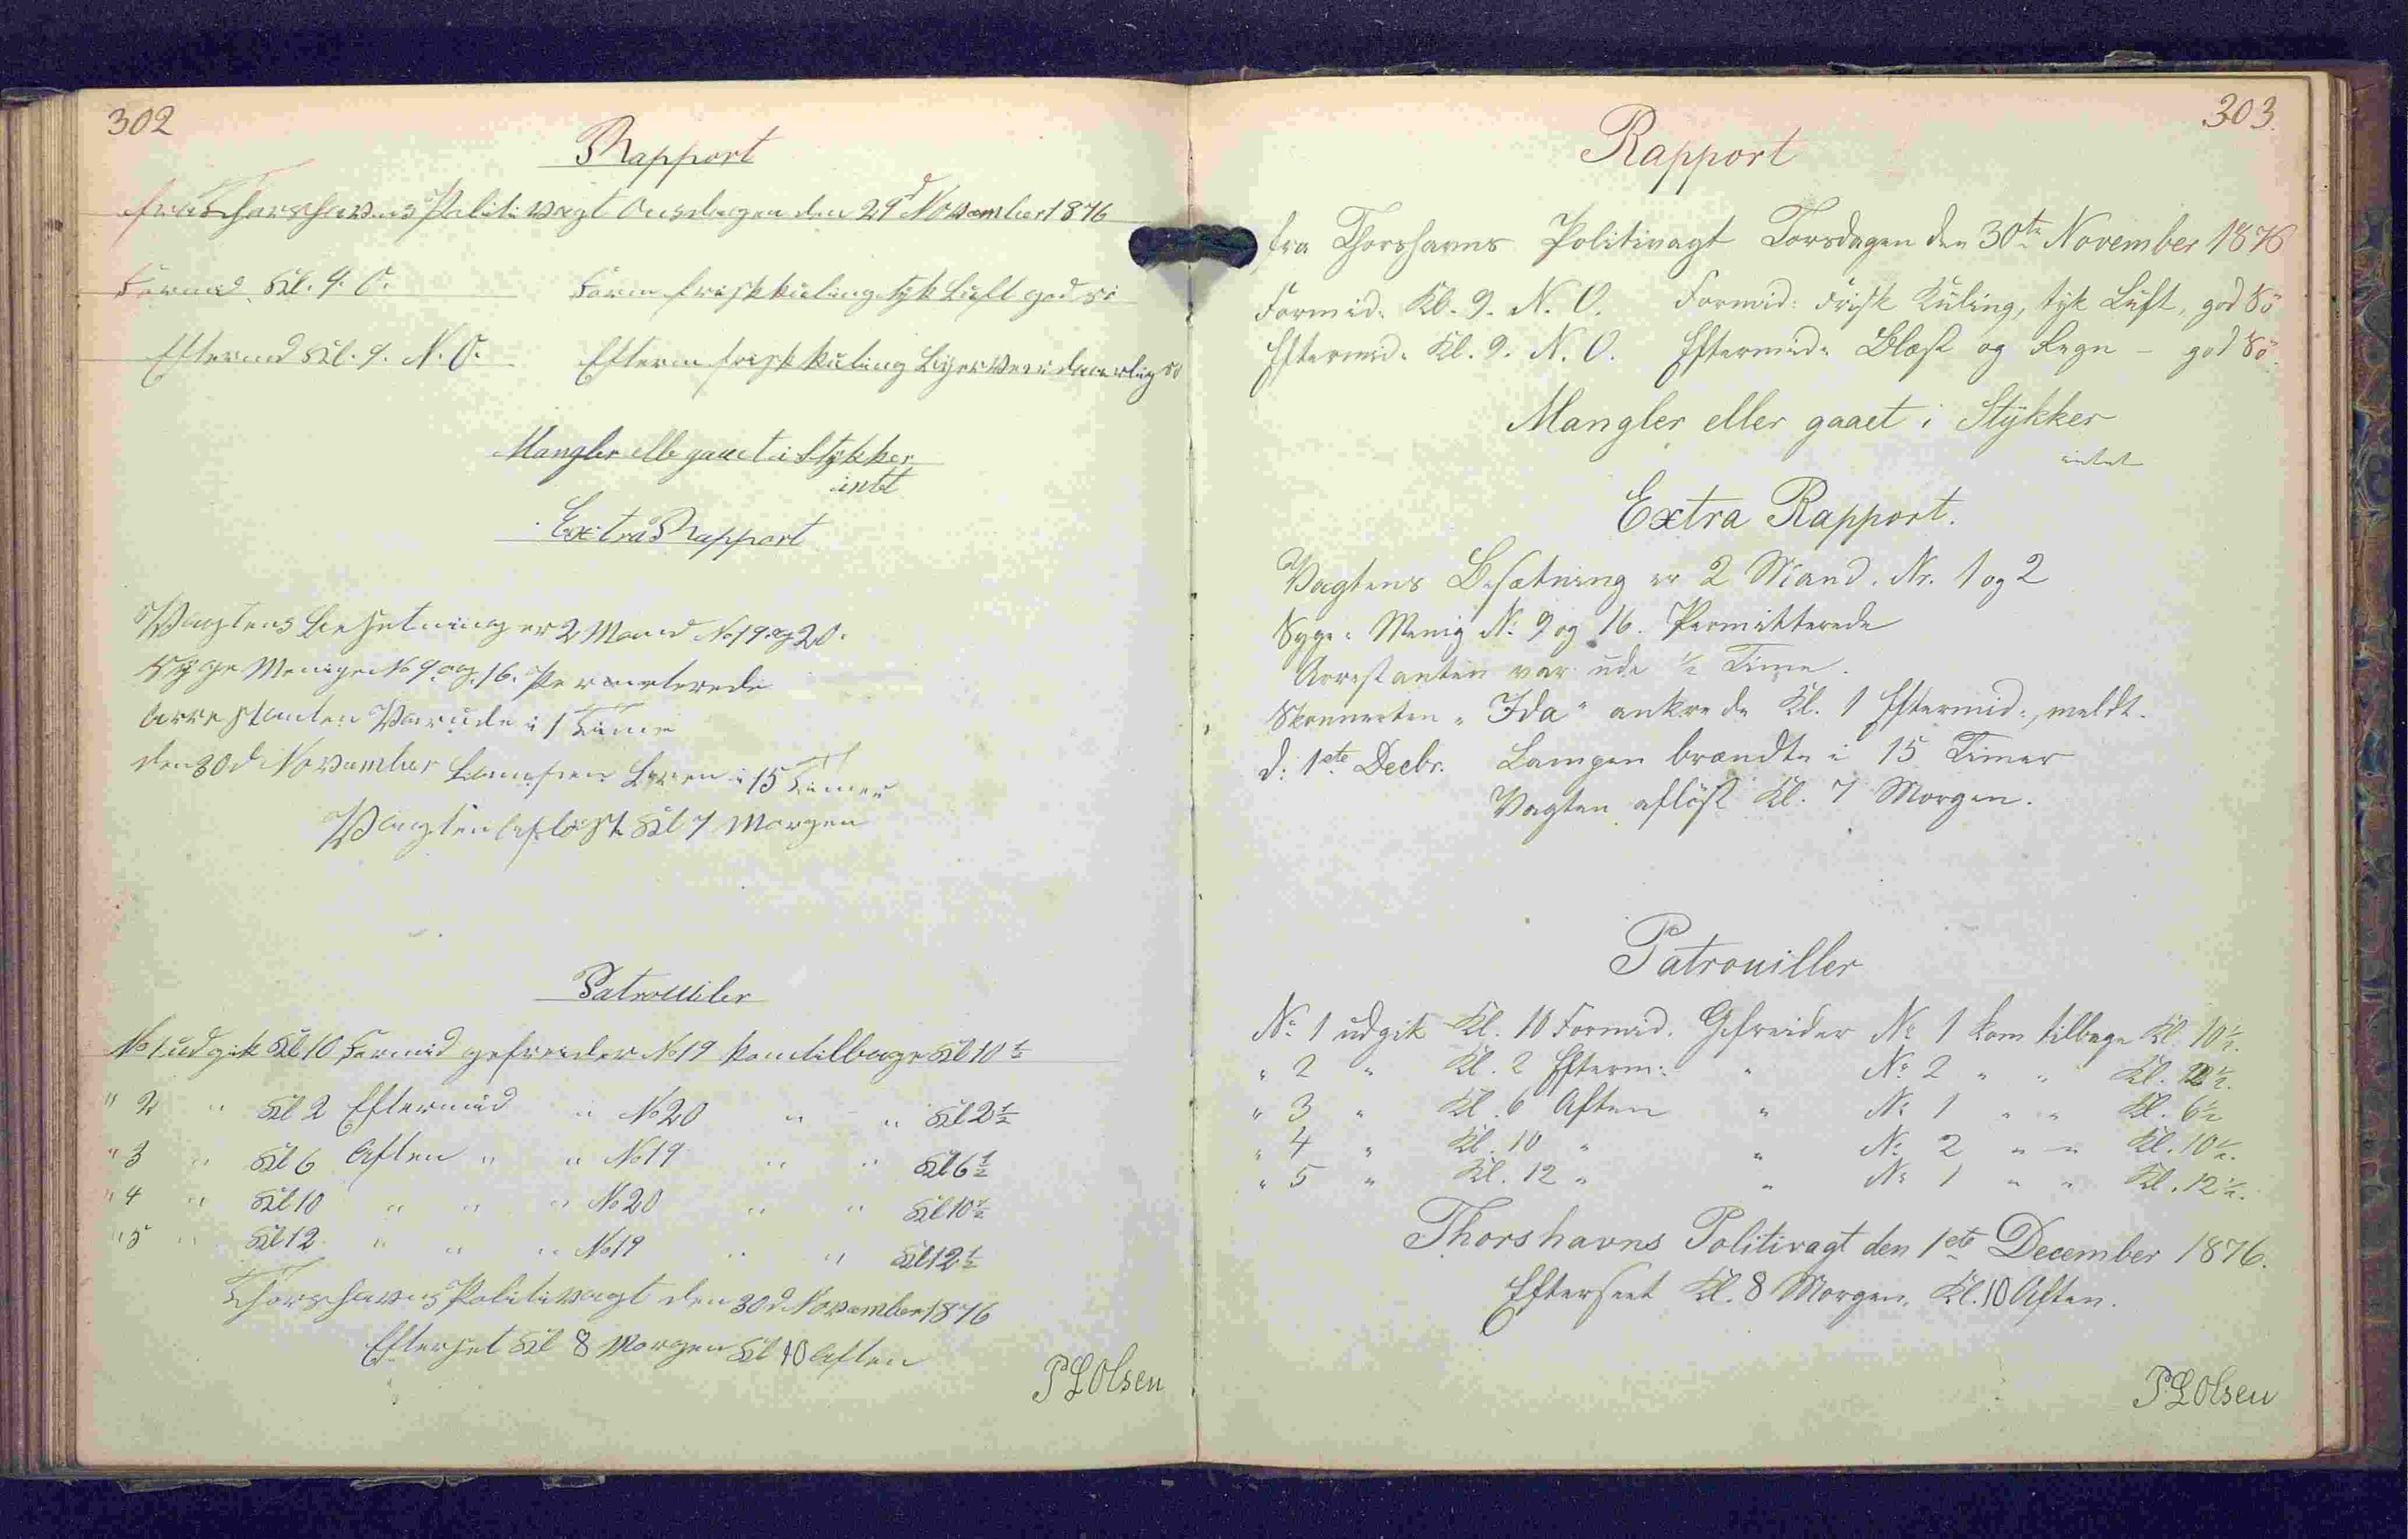 302
Rapport
fra Thorshavns Politivagt Onsdagen den 29d November 1876
Formd. Kl. 9. O. Form frisk kuling tyk Luft god sö
Eftermd Kl. 9. N. O. Efterm frisk kuling daarlig sö
Mangler elle gaaet i Stykker
intet
Extra Rapport
Vagtens Besetning er 2 Mand No 19 og 20.
Syge Menige No 9. og 16. Permeterede
Arrestanten Var ude i 1 Time
den 30d November Lampen i 15 Timer
Vagten aflöst Kl 7 Morgen
Patrouiler
No 1 udgik Kl 10 Formid gefreider No 19 kom tilbage Kl 10 1/2
" 2 " Kl 2 Eftermid " No 20 " " Kl 2 1/2
" 3 " Kl 6 Aften " " No 19 " " Kl 6 1/2
" 4 " Kl 10 " " " No 20 " " Kl 10 1/2
" 5 " Kl 12 " " " No 19 " " Kl 12 1/2
Thorshavns Politivagt den 30d November 1876
Efterset Kl 8 Morgen Kl 10 Aften
P L Olsen
303.
Rapport
fra Thorshavns Politivagt Torsdagen den 30te November 1876
Formid: Kl. 9. N. O. Formid: Frisk Kuling, tyk Luft, god Sö
Eftermid: Kl. 9. N. O. Eftermid: Blæst og Regn - god Sö.
Mangler eller gaaet i Stykker
intet
Extra Rapport.
Vagtens Besætning er 2 Mand. Nr. 1 og 2
Syge: Menig No 9 og 16. Permitterede
Arrestanten var ude 1/2 Time.
Skonnerten "Ida" ankrede Kl. 1 Eftermid:, meldt.
d: 1ste Decbr. Lampen brændte i 15 Timer
Vagten aflöst Kl. 7 Morgen.
Patrouiller
No 1 udgik Kl. 10 Formid. Gefreider No 1 kom tilbage Kl. 10 1/2.
" 2 " Kl. 2 Efterm: " No 2 " " Kl. 2 1/2.
" 3 " Kl. 6 Aften " No 1 " " Kl. 6 1/2
" 4 " Kl. 10 " " No 2 " " Kl. 10 1/2.
" 5 " Kl. 12 " " No 1 " " Kl. 12 1/2.
Thorshavns Politivagt den 1ste December 1876.
Efterseet Kl. 8 Morgen, Kl. 10 Aften.
P L Olsen